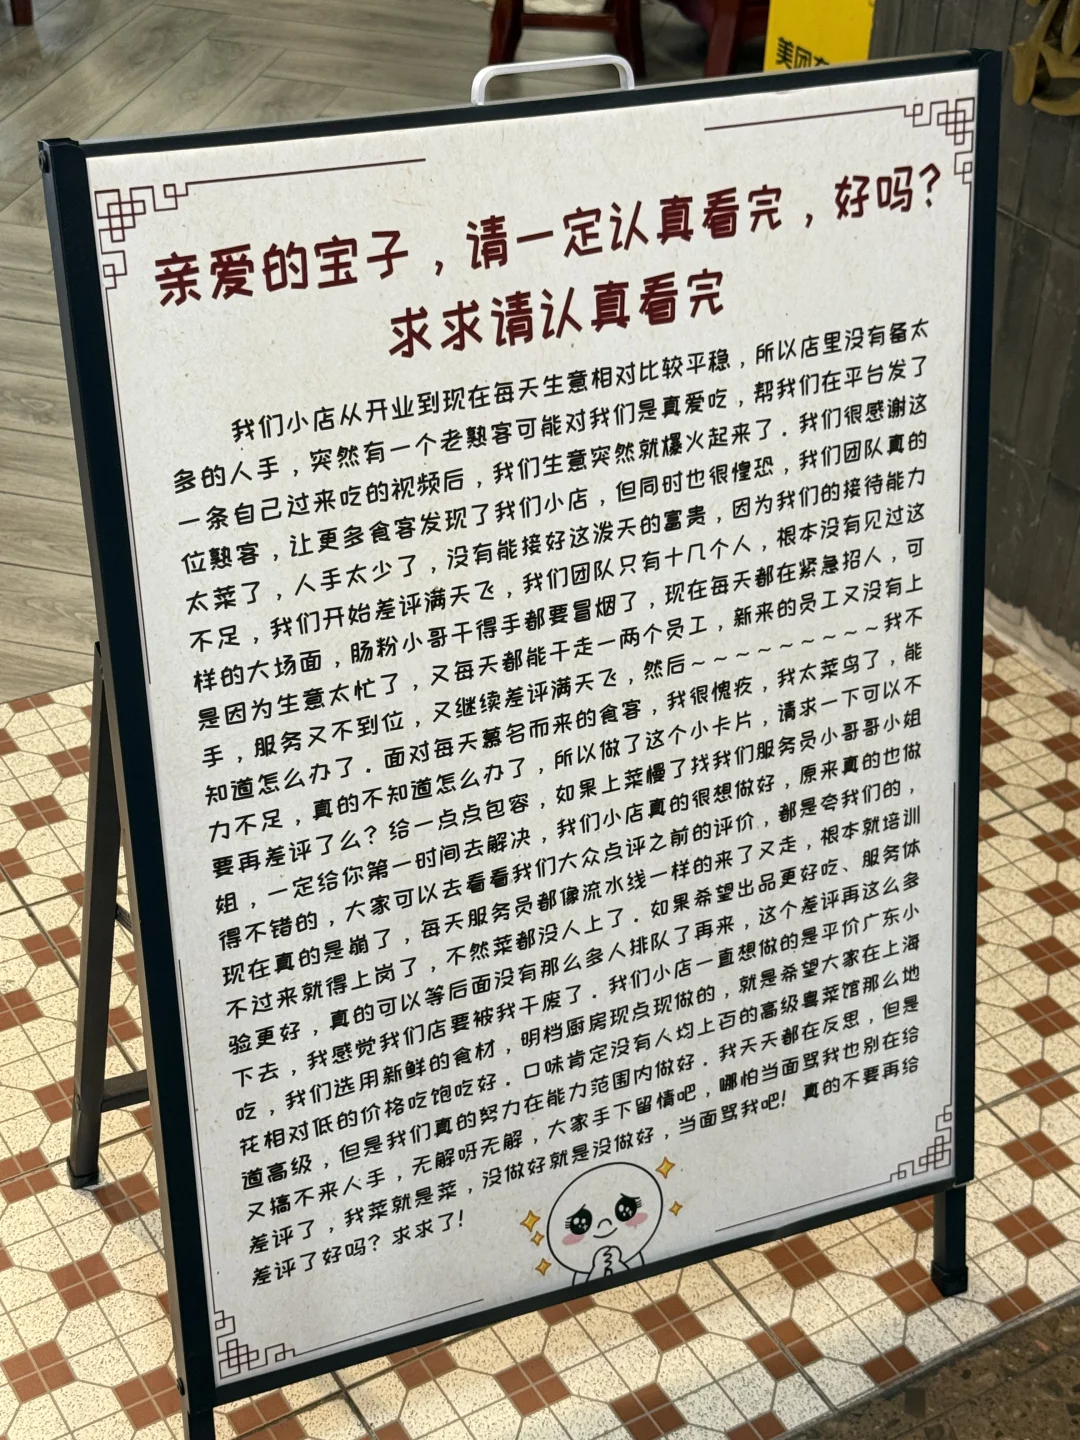 美团
亲爱的宝子，请一定认真看完，好吗？
求求请认真看完
我们小店从开业到现在每天生意相对比较平稳，所以店里没有备太
多的人手，突然有一个老熟客可能对我们是真爱吃，帮我们在平台发了
一条自己过来吃的视频后，我们生意突然就爆火起来了．我们很感谢这
位熟客，让更多食客发现了我们小店，但同时也很惶恐，我们团队真的
太菜了，人手太少了，没有能接好这泼天的富贵，因为我们的接待能力
不足，我们开始差评满天飞，我们团队只有十几个人，根本没有见过这
样的大场面，肠粉小哥干得手都要冒烟了，现在每天都在紧急招人，可
是因为生意太忙了，又每天都能干走一两个员工，新来的员工又没有上
手，服务又不到位，又继续差评满天飞，然后～～～～～～～～～我不
知道怎么办了．面对每天慕名而来的食客，我很愧疚，我太菜鸟了，能
力不足，真的不知道怎么办了，所以做了这个小卡片，请求一下可以不
要再差评了么？给一点点包容，如果上菜慢了找我们服务员小哥哥小姐
姐，一定给你第一时间去解决，我们小店真的很想做好，原来真的也做
得不错的，大家可以去看看我们大众点评之前的评价，都是夸我们的，
现在真的是崩了，每天服务员都像流水线一样的来了又走，根本就培训
不过来就得上岗了，不然菜都没人上了．如果希望出品更好吃、服务体
验更好，真的可以等后面没有那么多人排队了再来，这个差评再这么多
下去，我感觉我们店要被我干废了．我们小店一直想做的是平价广东小
吃，我们选用新鲜的食材，明档厨房现点现做的，就是希望大家在上海
花相对低的价格吃饱吃好．口味肯定没有人均上百的高级粤菜馆那么地
道高级，但是我们真的努力在能力范围内做好．我天天都在反思，但是
又搞不来人手，无解呀无解，大家手下留情吧，哪怕当面骂我也别在给
差评了，我菜就是菜，没做好就是没做好，当面骂我吧！真的不要再给
差评了好吗？求求了！